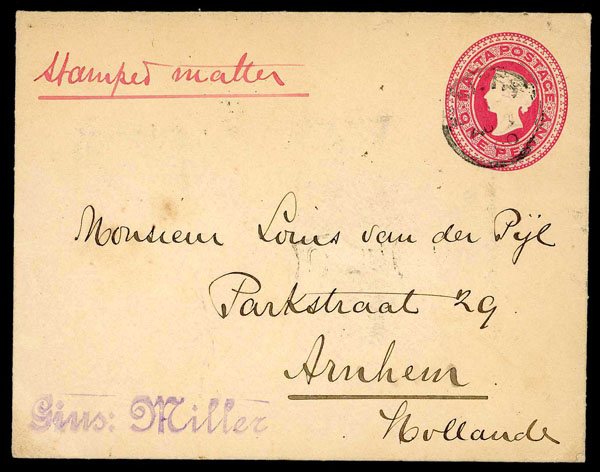 Stamped matter
MALTA POSTAGE
ONE PENNY
Monsieur Louis van der Pijl
Parkstraat 29
Arnhem
Hollande
Gius: Miller